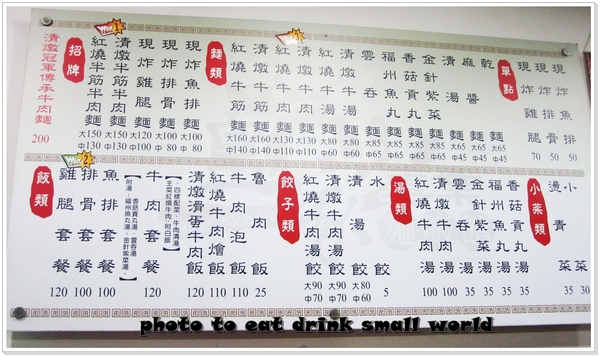 清燉冠軍傳承牛肉麵 200
招牌
紅燒半筋半肉麵 大150 中130
清燉半筋半肉麵 大150 中130
現炸雞腿麵 大120 中100
現炸排骨麵 大100 中80
現炸魚排麵 大100 中80
麵類
紅燒牛肉麵 大160 中140
清燉牛肉麵 大160 中140
紅燒牛湯麵
清燉牛湯麵
雲吞麵 大85 中65
福州魚丸麵 大85 中65
香菇貢丸麵 大85 中65
金針紫菜麵 大85 中65
清湯麵 大65 中45
麻醬麵 大65 中45
乾麵 大65 中45
單點
現炸雞腿 70
現炸排骨 50
現炸魚排 50
飯類
雞腿套餐 120
排骨套餐 100
魚排套餐 100
【附湯：香菇貢丸湯、雲吞湯、
福州魚丸湯、金針紫菜湯】
牛肉套餐 120
【四樣配菜、牛肉清湯
主菜紅燒牛肉、附白飯】
清燉滑蛋牛肉飯 120
紅燒牛肉燴飯 110
牛肉泡飯 110
魯肉飯 25
餃子類
紅燒牛肉湯餃 大90 中70
清燉牛肉湯餃 大90 中70
清湯餃 大80 中60
水餃 5
湯類
紅燒牛肉湯 100
清燉牛肉湯 100
雲吞湯 35
金針紫菜湯 35
福州魚丸湯 35
香菇貢丸湯 35
小菜類
燙青菜 35
小菜 30
photo to eat drink small world